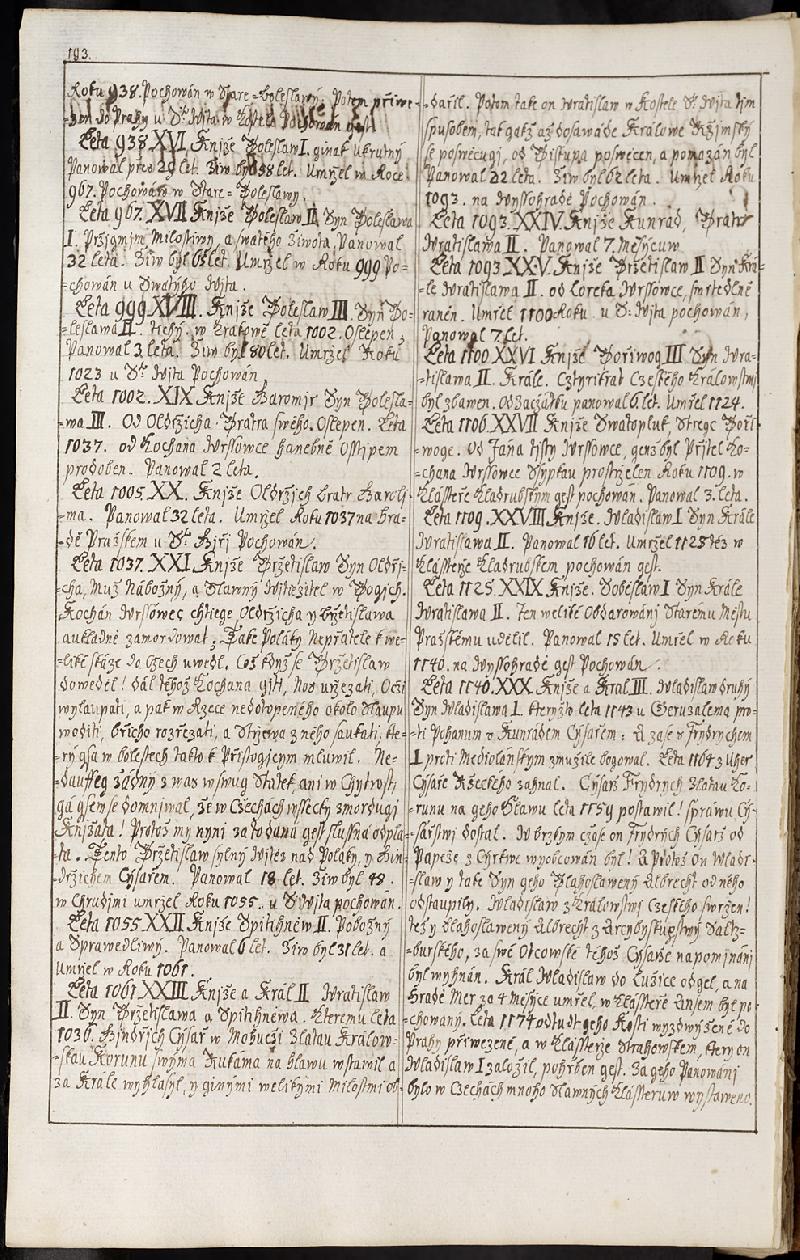 193.
Roku 938. Pochowán w Stare=boleslawý. Potom přiwe=
=zen do Prahy u Sº Wita w Kostele Pochowan gest
Léta 938. XVI. Knjže Boleslaw I. ginak Ukrutný
Panowal před 29 let. Ziw byl 58 let. Umržel w Roce
967. Pochowán w Stare=Boleslawy.
Léta 967. XVII Knjže Boleslaw II. Syn Boleslawa
I. Pržigmjm Milostiwý, a swatého Ziwota, Panowal
32 leta. Ziw byl let. Umržel w Roku 999 Po=
=chowán u Swatýho Wita.
Léta 999 XVIII. Knjže Boleslaw III. Syn Bo=
=leslawa II. tichý. w Kratowě leta 1002. Oslepen,
Panowal 3 leta. Ziw byl 80 let. Umržel Roku
1023 u Sº Wjta Pochowán
Léta 1002. XIX. Knjže Jaromjr Syn Bolesla=
=wa III. Od Oldržicha Bratra swého. Oslepen. Léta
1037. od Kochana Wrssowce hanebně Osstipem
proboden. Panowal 2 leta.
Léta 1005. XX. Knjže Oldržich bratr Jaromj=
=ma. Panowal 32 leta. Umržel Roku 1037 na Hra=
=dě Pražskem u Sº Jiřj Pochowán.
Léta 1037. XXI Knjže Bržetislaw Syn Oldřj=
=cha, Muž Nábožný, a Slawný Witězitel w Bogjch.
Kochán Wrssowec chtiege Oldržicha y Bržetislawa
aukladně zamordowat, Také Poláky Nepřátele k we=
=liké skáze do Czech uwedl. Což když se Bržetislaw
dowěděl! dal téhož Kochana gjti, Nos uržezati, Oči
wylaupati, a pak w Rzece nedotopeného okolo Slaupu
woditi, břicho rozřezati, a Střewa z ného saukati. Kte=
=rý gsa w bolestech takto k Přistogjcym mluwil. Ne=
=dauffeg žádný z was w swug Statek ani w Chytrosti
gá gsem se domnjwal, že w Czechach wssecky zmordugj
Knjžata! Protož my nyni za to daná gest slussná odpla=
=ta. Tento Bržetislaw sylný Witěz nad Poláky, y Kun=
=držichem Cysařem. Panowal 18 let. Ziw byl 48.
w Chrudimi umržel Roku 1055. u S: Wita pochowán.
Léta 1055. XXII Knjže Spitihněw II. Pobožný
a Sprawedliwý. Panowal 6 let. Ziw byl 31 let. a
Umržel w Roku 1061.
Léta 1061 XXIII Knjže a Král II Wratislaw
II. Syn Bržetislawa a Spitihněwa. Kteremu léta
1036. Jindřich Cýsař w Mohuczi Zlatau Králow=
=skau Korunu swýma Rukama na hlawu wstawil a
za Krále wyhlásyl, y ginými welikými Milostmi ob=
=dařil. Potom také on Wratislaw w Kostele S: Wjta tjm
spusobem, tak gakž až dosawáde Králowé Řžjmský
se poswěcugj, od Biskupa poswěcen, a pomazán byl
Panowal 32 leta. Ziw byl 62 leta. Umřel Roku
1093. na Wyssohradě Pochowán.
Léta 1093. XXIV. Knjže Kunrád, Bratr
Wratislawa II. Panowal 7. Měsýcuw.
Léta 1093. XXV. Knjže Bržetislaw II Syn Krá=
=le Wratislawa II. od Loreka Wrssowce, smrtedlně
raněn. Umřel 1100 Roku u S: Wjta pochowán,
Panowal 7 let.
Léta 1100 XXVI Knjže Bořiwog III Syn Wra=
=tislawa II. Krále. Cztyrikrat Czeského Králowstwj
byl zbawen. Od Začátku panowal 6 let. Umřel 1124.
Léta 1106. XXVII Knjže Swatopluk, Stregc Boři=
=woge. Od Jana tisty Wrssowce, genž byl Přjtel Ko=
=chana Wrssowce Ssypkau prostrželen Roku 1109. w
Klássteře Kladrubským gest pochowán. Panowal 3. leta.
Léta 1109. XXVIII. Knjže. Wladislaw I Syn Krále
Wratislawa II. Panowal 16 let. Umržel 1125 též w
Klássterže Kladrubskem pochowán gest.
Léta 1125. XXIX Knjže. Sobeslaw I Syn Krále
Wratislawa II. Ten weliké Obdarowánj Staremu Městu
Pražskému udělil. Panowal 15 let. Umřel w Roku
1140. na Wyssohradě gest Pochowán.
Léta 1140. XXX. Knjže a Král III. Wladislaw druhý
Syn Wladislawa I. kterýžto léta 1143 u Geruzaléma pro=
=ti Pohanum z Kunrádem Cýsařem: A zase z Frydrychem
I proti Mediolánským zmužile bogowal. Léta 1164 z Uher
Cýsaře Ržeckého zahnal. Cýsař Frydrych Zlatau Ko=
=runu na geho Hlawu léta 1159 postawil! spráwu Cý=
=sařstwj dosál. W brzkym čase on Frydrych Cýsarž od
Papeže z Cyrkwe wyobcowán byl! A Protož On Wladi=
=slaw y také Syn geho Blahoslawený Albrecht od něho
odstaupily. Wladislaw z Králowstwj Czeského swržen!
též y blahoslawený Albrecht z Arcybyskupstwj Saltz=
=burského, za swé Otcowské téhož Cýsarže napomjnánj
byl wyhnán. Král Wladislaw do Lužice odgel, a na
Hradě Mer za 4 Měsýce umřel, w Klássteře Kansem byl po=
=chowaný. Léta 1174 odtud geho Kosti wyzdwjžené do
Prahy přiwezené, a w Klássterže Strahowskem, který on
Wladislaw I založil, pohřben gest. Za geho Panowánj
bylo w Czechach mnoho Slawných Klássteruw wystaweno.